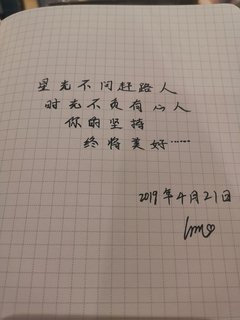 星光不问赶路人
时光不负有心人
你的坚持
终将美好……
2019年4月21日